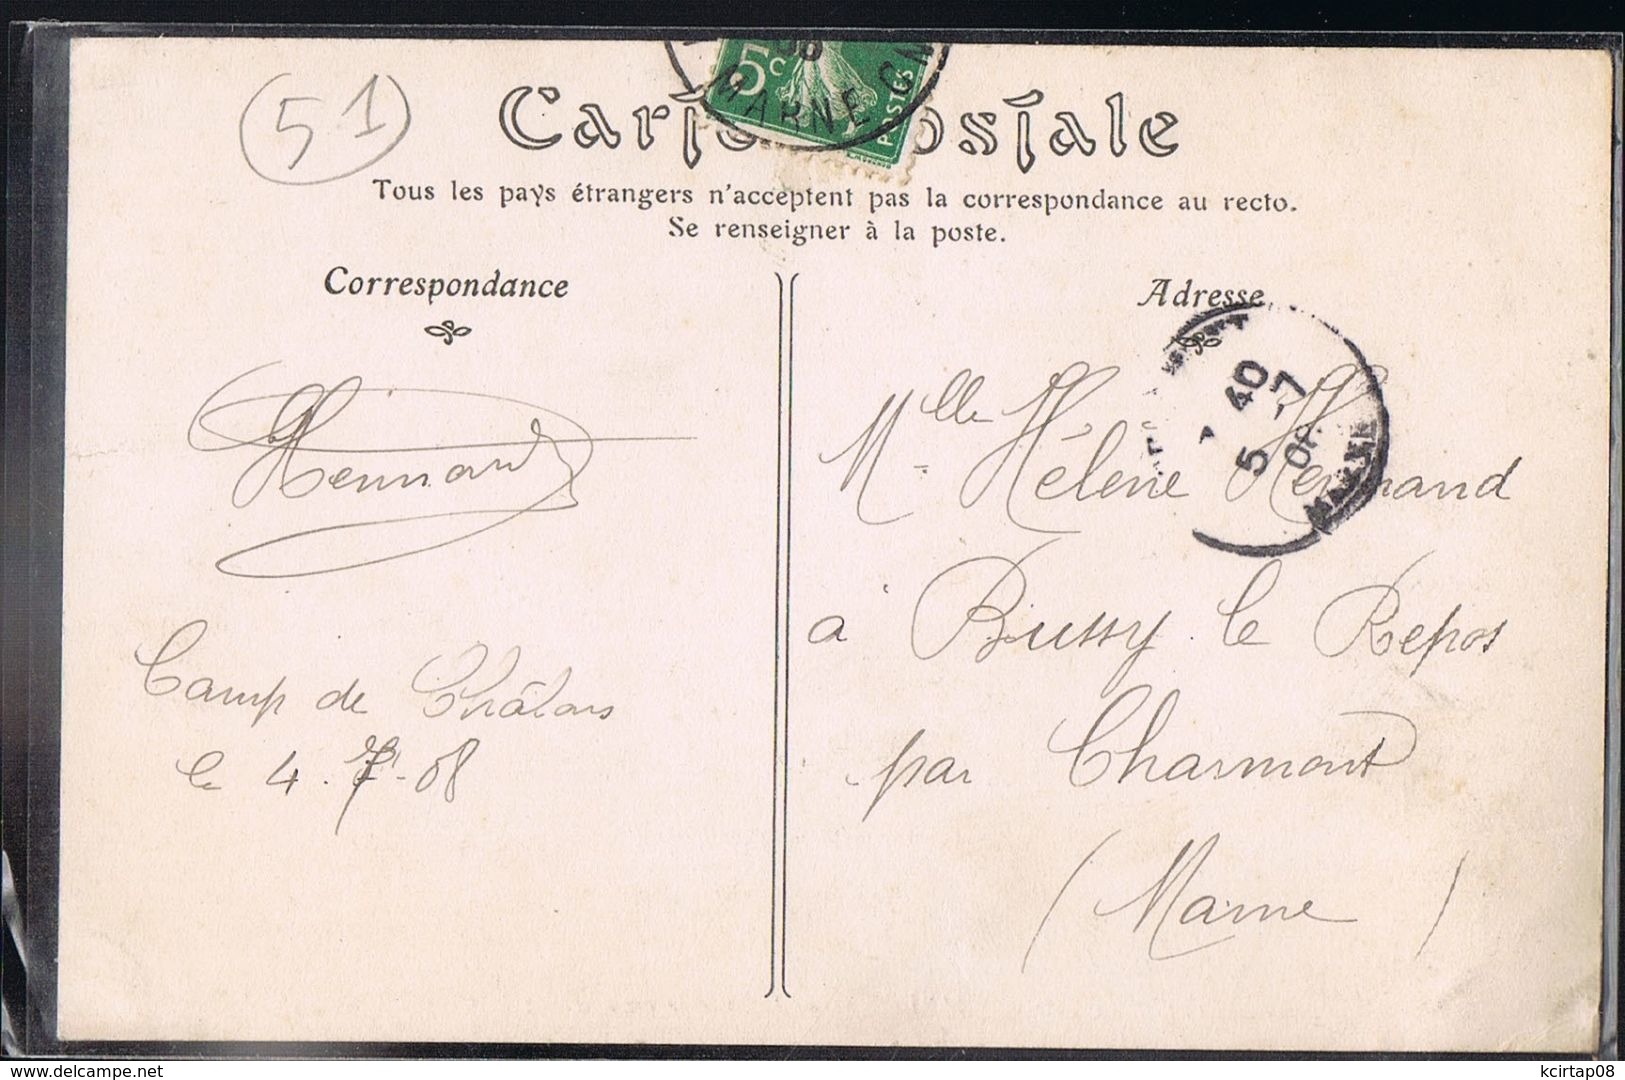 51
5c
POSTES
MARNE
Carte Postale
Tous les pays étrangers n'acceptent pas la correspondance au recto.
Se renseigner à la poste.
Correspondance
Hennand
Camp de Châlons
le 4.7-08
Adresse
7 40
5 -7
08
MARNE
Mlle Hélène Hennand
à Bussy le Repos
par Charmont
(Marne)
www.delcampe.net
kcirtap08